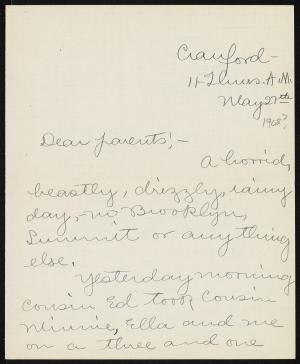 Cranford -
11 Thurs. A.M.
May 27th
1908?
Dear parents; -
A horrid,
beastly, drizzly, rainy
day, no Brooklyn,
Summit or anything
else.
Yesterday morning
Cousin Ed took Cousin
Minnie, Ella and me
on a three and one